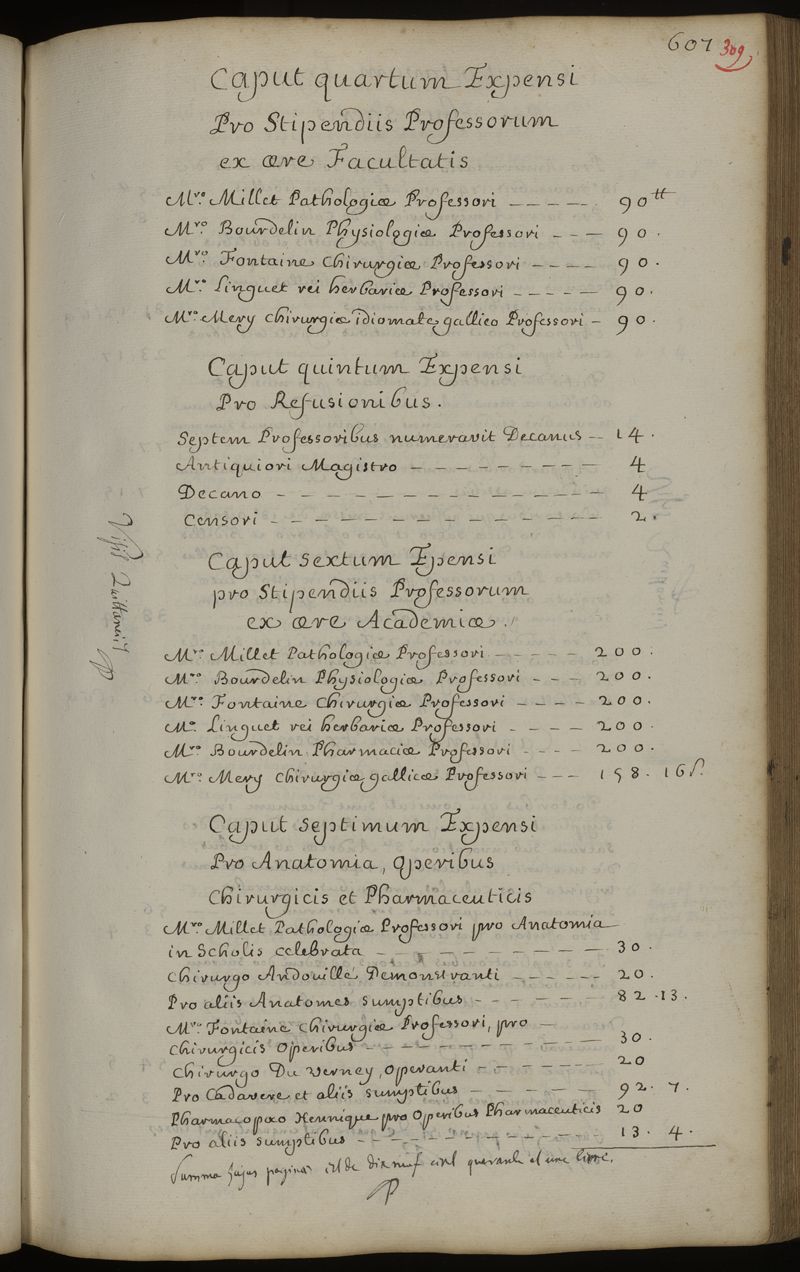 607 309
Caput quartum Expensi
Pro Stipendiis Professorum
ex ære Facultatis
Mro Millet Pathologiæ Professori — — — — — 90tt
Mro Bourdelin Physiologiæ Professori — — — 90.
Mro Fontaine Chirurgiæ Professori — — — — 90.
Mro Linguet rei herbariæ Professori — — — — — 90.
Mro Mery Chirurgiæ idiomate gallico Professori — 90.
Caput quintum Expensi
Pro Refusionibus.
Septem Professoribus numeravit Decanus — 14.
Antiquiori Magistro — — — — — — — — — 4
Decano — — — — — — — — — — — — — — 4
Censori — — — — — — — — — — — — — — 2.
Caput sextum Epensi
pro Stipendiis Professorum
ex ære Academiæ.
Mro Millet Pathologiæ Professori — — — — — 200.
Mro Bourdelin Physiologiæ Professori — — — 200.
Mro Fontaine Chirurgiæ Professori — — — — 200.
Mro Linguet rei herbariæ Professori — — — — 200.
Mro Bourdelin Pharmaciæ Professori — — — — 200.
Mro Mery Chirurgiæ gallicæ Professori — — — 198. 16s.
Caput Septimum Expensi
Pro Anatomia, Operibus
Chirurgicis et Pharmaceuticis
Mro Millet Pathologiæ Professori pro Anatomia
in Scholis celebrata — — — — — — — — — 30.
Chirurgo Andouillé Demonstranti — — — — — 20.
Pro aliis Anatomes sumptibus — — — — — 82.13.
Mro Fontaine Chirurgiæ Professori, pro —
Chirurgicis Operibus — — — — — — — — — 30.
Chirurgo Du Verney, operanti — — — — — 20
Pro Cadavere et aliis sumptibus — — — — — 92. 7.
Pharmacopæo Hennique pro Operibus Pharmaceuticis 20
Pro aliis sumptibus — — — — — — — — — 13. 4.
Summa hujus paginæ est de dix neuf cent quarante et une livre.